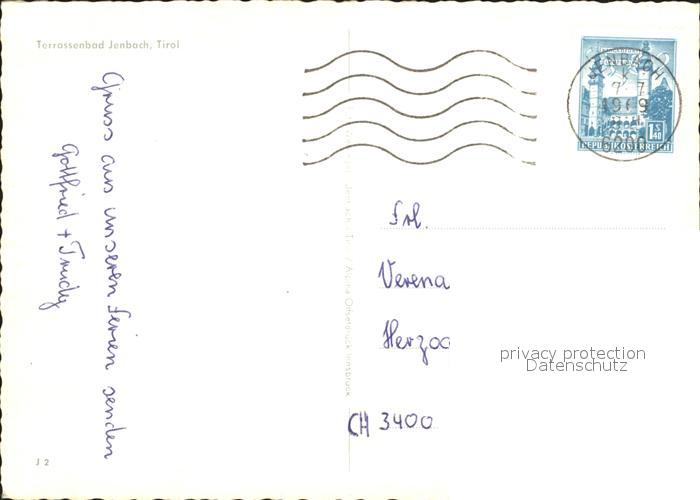 Terrassenbad Jenbach, Tirol
Gruss aus unseren Ferien senden
Gottfried + Trudy
J 2
Alpina Offsetdruck Innsbruck
JENBACH
7 7
1969
6200
1.S
40
REPUBLIK ÖSTERREICH
Frl.
Verena
Herzog
CH 3400
privacy protection
Datenschutz